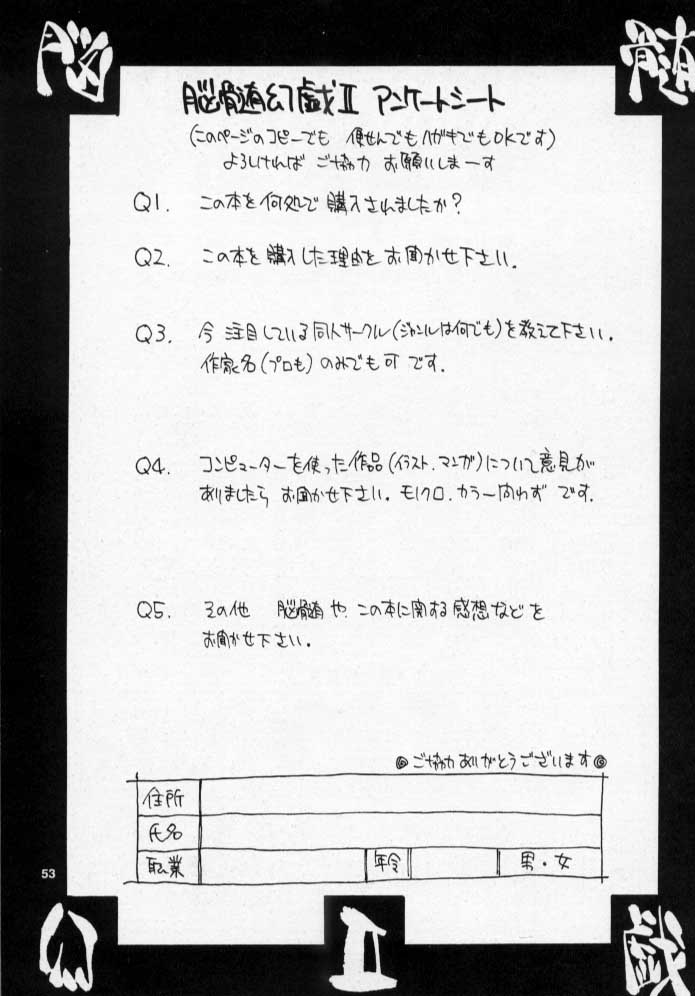 脳 髄
脳髄幻戯Ⅱ アンケートシート
(このページのコピーでも 便せんでもハガキでもOKです)
よろしければ ご協力 お願いしまーす
Q1. この本を何処で購入されましたか?
Q2. この本を購入した理由をお聞かせ下さい.
Q3. 今注目している同人サークル(ジャンルは何でも)を教えて下さい.
作家名(プロも)のみでも可です.
Q4. コンピューターを使った作品(イラスト.マンガ)について意見が
ありましたら お聞かせ下さい.モノクロ.カラー問わず です.
Q5. その他 脳髄や、この本に関する感想などを
お聞かせ下さい.
◎ご協力ありがとうございます◎
住所
氏名
職業 年令 男・女
53
幻 Ⅱ 戯